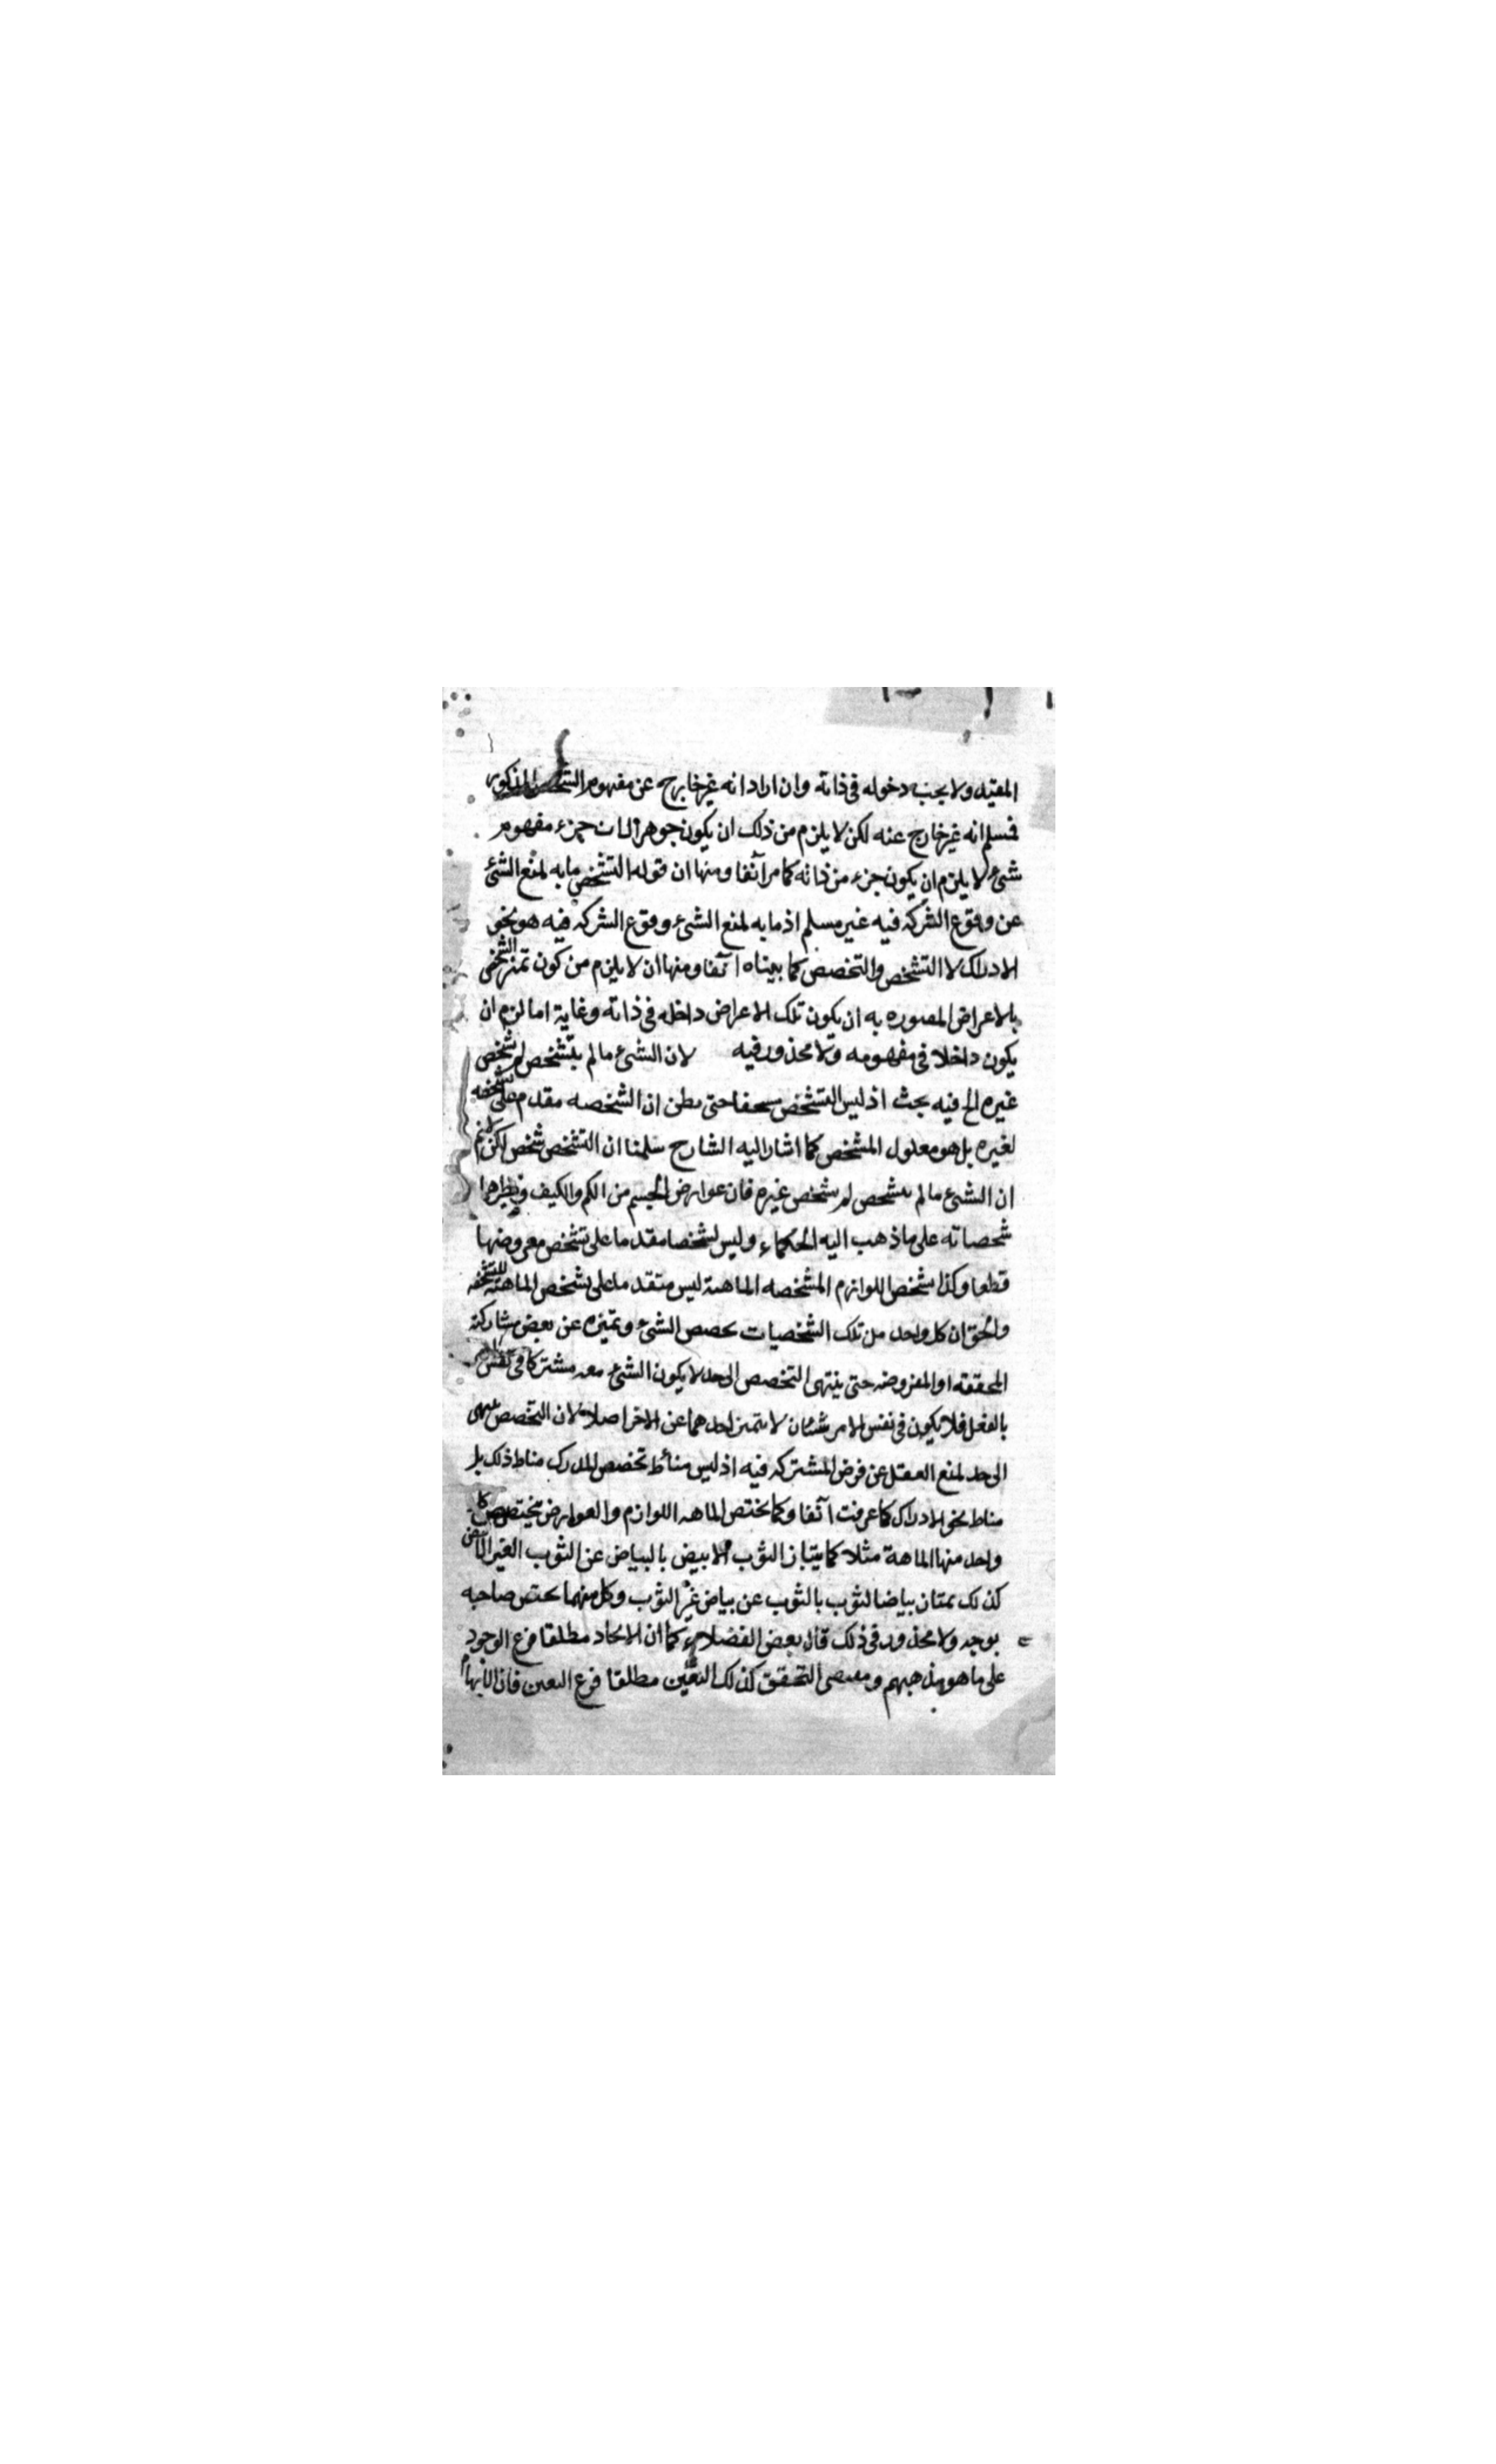 المقيد ولا يجب دخوله فى ذاته وان اراد انه غير خارج عن مفهوم الشخص المذكور
فمسلم انه غير خارج عنه لكن لا يلزم من ذلك ان يكون جوهرا لان جزء مفهوم
شىء لا يلزم ان يكون جزء من ذاته كما مر آنفا ومنها ان قوله التشخص ما به لمنع الشئ
عن وقوع الشركه فيه غير مسلم اذ ما به لمنع الشىء وقوع الشركه فيه هو نحو
الادراك لا التشخص والتخصص كما بيناه آنفا ومنها ان لا يلزم من كون تميز الشخص
بالاعراض المصوره به ان يكون تلك الاعراض داخله فى ذاته وغاية اما لزم ان
يكون داخلا فى مفهومه ولا محذور فيه لان الشىء ما لم يتشخص لم يشخص
غيره الخ فيه بحث اذ ليس التشخص حتى يظن ان الشخصه مقدم على تشخصه
لغيره بل هو معلول المشخص كما اشار اليه الشارح سلمنا ان التشخص شخص لكن لا نم
ان الشىء ما لم يتشخص لم يشخص غيره فان عوارض الجسم من الكم والكيف ونظيرها
شخصاته على ما ذهب اليه الحكماء وليس تشخصها مقدما على تشخص معروضها
قطعا وكذا تشخص اللوازم المشخصه الماهية ليس متقدما على تشخص الماهية
والحق ان كل واحد من تلك الشخصيات يخصص الشىء ويميزه عن بعض مشاركته
المحققه او المفروضه حتى ينتهى التخصص الى حد لا يكون الشىء معه مشتركا فى نفس
بالفعل فلا يكون فى نفس الامر شيئان لا يتميز احدهما عن الاخر اصلا لا لان التخصص ينتهى
الى حد لمنع العقل عن فرض المشتركه فيه اذ ليس مناط تخصص المدرك مناط ذلك بل
مناط نحو الادراك كما عرفت آنفا وكما يختص الماهيه اللوازم والعوارض يختص كل
واحد منها الماهية مثلا كما يتباز الثوب الابيض بالبياض عن الثوب الغير الابيض
كذلك يمتاز بياض الثوب بالثوب عن بياض غير الثوب وكل منهما يختص صاحبه
بوجه ولا محذور فى ذلك قال بعض الفضلاء كما ان الاتحاد مطلقا فرع الوجود
على ما هو مذهبهم ومقتضى التحقق كذلك التعين مطلقا فرع التعين فان الابهام